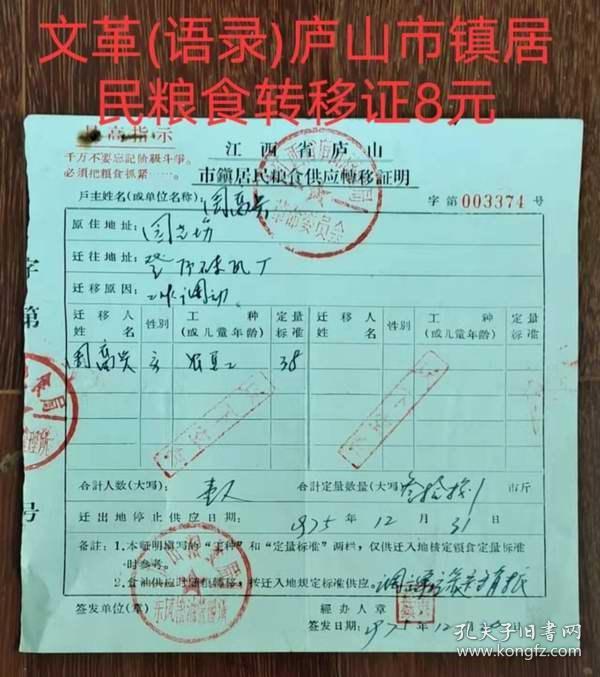 文革(语录)庐山市镇居
民粮食转移证8元
最高指示
千万不要忘记阶级斗爭。
必须把粮食抓紧……。
江西省庐山
市鎭居民粮食供应轉移証明
戶主姓名(或单位名称):
字第 003374 号
原住地址:
迁往地址:
迁移原因: 工作调动
迁移人姓名 性别 工种(或儿童年龄) 定量标准 迁移人姓名 性别 工种(或儿童年龄) 定量标准
38
合計人数(大写): 壹人 合計定量数量(大写) 叁拾捌 市斤
迁出地停止供应日期: 1975 年 12 月 31 日
备註:1.本証明填写的“工种”和“定量标准”两栏,仅供迁入地核定粮食定量标准
时参考。
2.食油供应对随粮轉移,按迁入地规定标准供应。
签发单位(章) 經办人章
签发日期: 1975 年 12 月
字第
号
革命委员会
孔夫子旧书网
www.kongfz.com